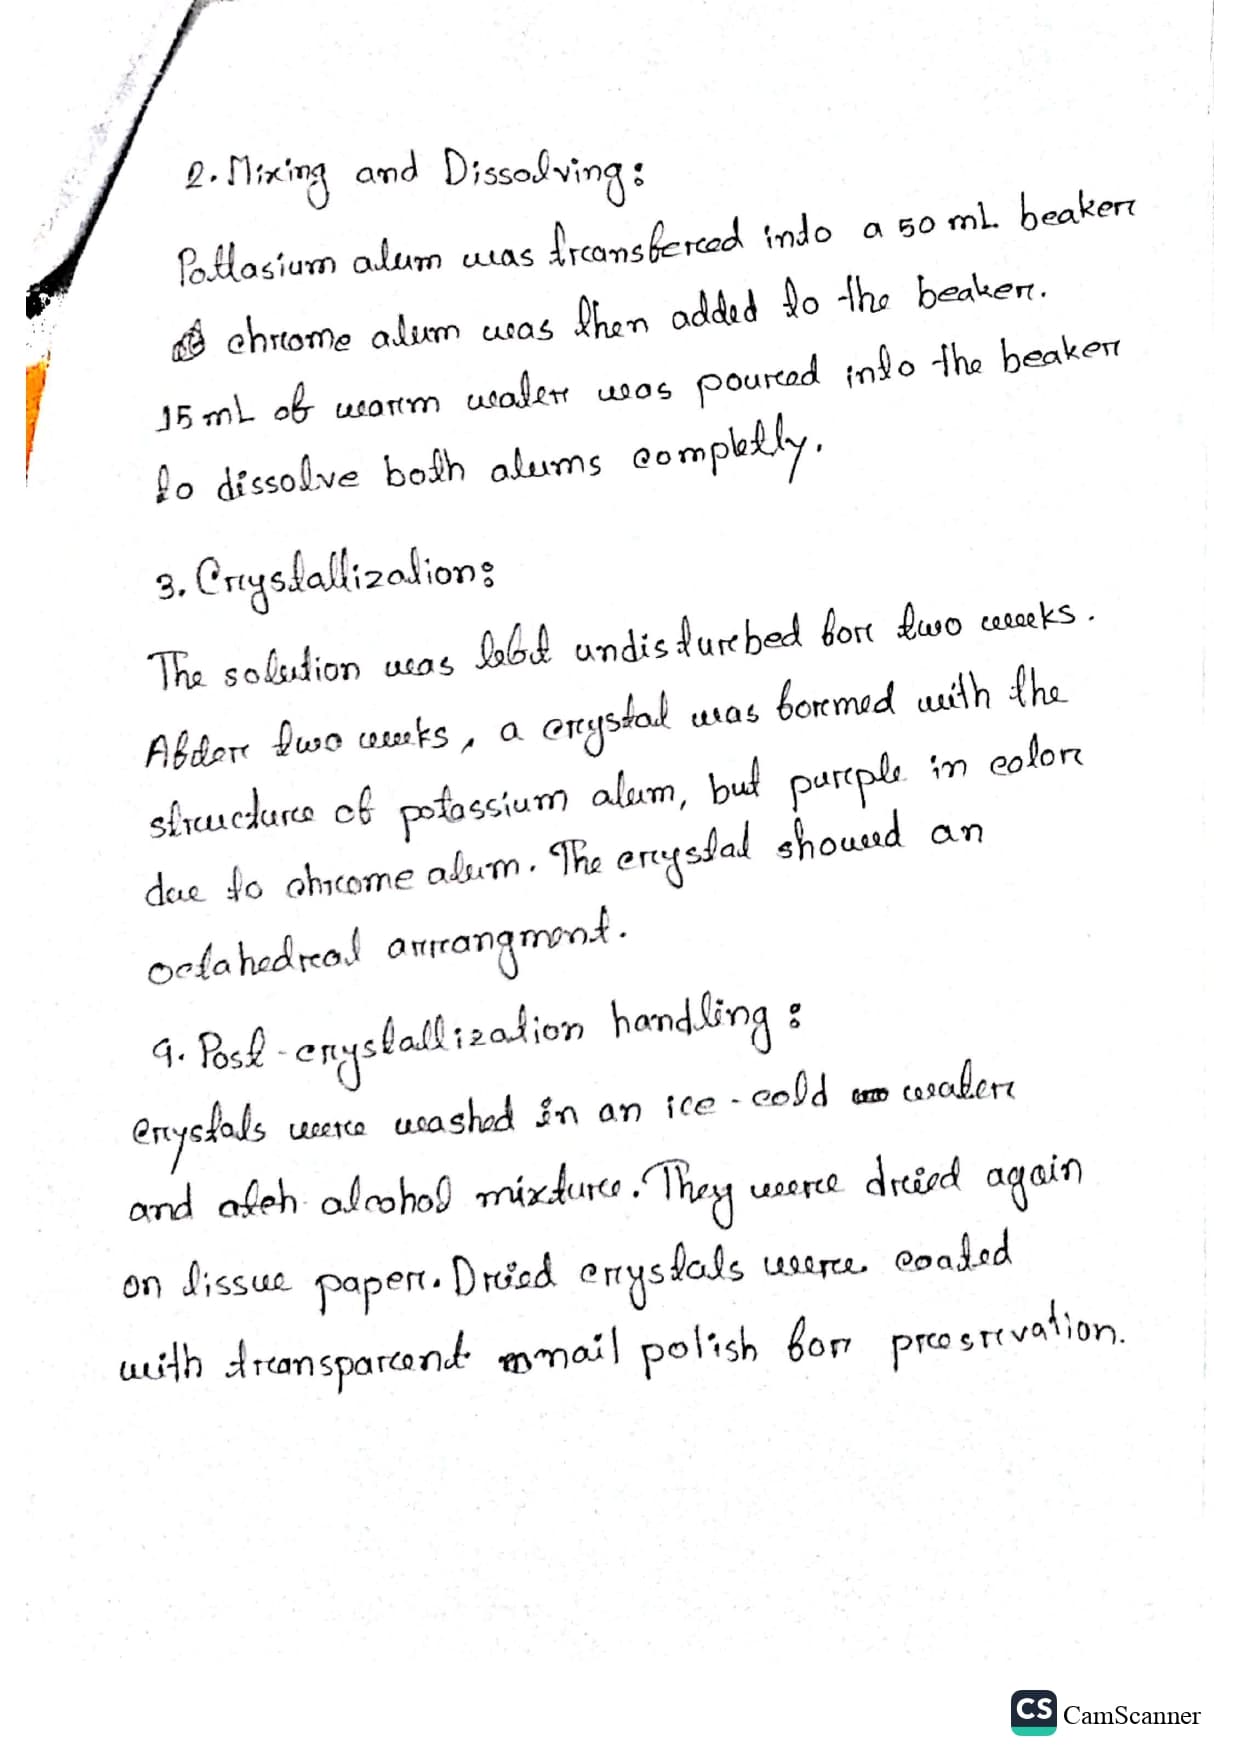 2. Mixing and Dissolving:
Pottasium alum was transferred into a 50 mL beaker
chrome alum was then added to the beaker.
15 mL of warm water was poured into the beaker
to dissolve both alums completly.
3. Crystallization:
The solution was left undisturbed for two weeks.
After two weeks, a crystal was formed with the
structure of potassium alum, but purple in color
due to chrome alum. The crystal showed an
octahedral arrangment.
4. Post-crystallization handling:
crystals were washed in an ice-cold water
and alcohol mixture. They were dried again
on tissue paper. Dried crystals were coated
with transparent nail polish for preservation.
CS CamScanner